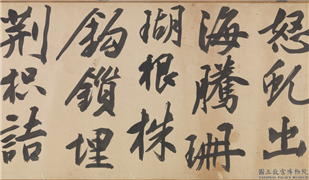 怒虬出
海騰珊
瑚根株
鈎鎖埋
荊枳詰
國立故宮博物院
NATIONAL PALACE MUSEUM